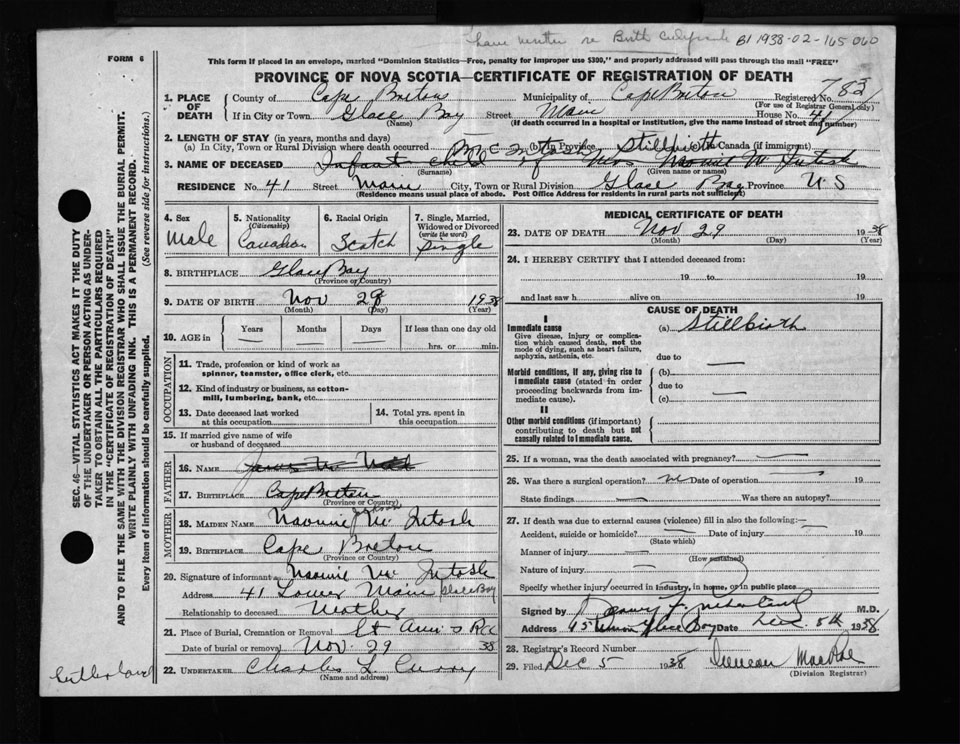 have written re Birth B1 1938-02-165060
FORM 6
This form if placed in an envelope, marked "Dominion Statistics—Free, penalty for improper use $300," and properly addressed will pass through the mail "FREE"
PROVINCE OF NOVA SCOTIA—CERTIFICATE OF REGISTRATION OF DEATH
Registered No. 783
(For use of Registrar General only)
1. PLACE OF DEATH
County of Cape Breton Municipality of Cape Breton
If in City or Town Glace Bay Street Main House No. 41
(Name) (If death occurred in a hospital or institution, give the name instead of street and number)
2. LENGTH OF STAY (in years, months and days)
(a) In City, Town or Rural Division where death occurred (b) In Province Stillbirth Canada (if immigrant)
3. NAME OF DECEASED Infant child of Mrs McIntosh
(Surname) (Given name or names)
RESIDENCE No. 41 Street Main City, Town or Rural Division Glace Bay Province N S
(Residence means usual place of abode. Post Office Address for residents in rural parts not sufficient)
4. Sex Male
5. Nationality (Citizenship) Canadian
6. Racial Origin Scotch
7. Single, Married, Widowed or Divorced (write the word) Single
8. BIRTHPLACE Glace Bay
(Province or Country)
9. DATE OF BIRTH Nov 29 1938
(Month) (Day) (Year)
10. AGE in Years Months Days If less than one day old
hrs. or min.
OCCUPATION
11. Trade, profession or kind of work as spinner, teamster, office clerk, etc.
12. Kind of industry or business, as cotton-mill, lumbering, bank, etc.
13. Date deceased last worked at this occupation
14. Total yrs. spent in this occupation
15. If married give name of wife or husband of deceased
FATHER
16. NAME James
17. BIRTHPLACE Cape Breton
(Province or Country)
MOTHER
18. MAIDEN NAME Naomie McIntosh
19. BIRTHPLACE Cape Breton
(Province or Country)
20. Signature of informant Naomie McIntosh
Address 41 Lower Main Glace Bay
Relationship to deceased Mother
21. Place of Burial, Cremation or Removal St Ann's
Date of burial or removal Nov. 29 38
22. UNDERTAKER Charles L Curry
(Name and address)
MEDICAL CERTIFICATE OF DEATH
23. DATE OF DEATH Nov 29 1938
(Month) (Day) (Year)
24. I HEREBY CERTIFY that I attended deceased from:
19 to 19
and last saw h alive on 19
CAUSE OF DEATH
I
Immediate cause (a) Stillbirth
Give disease, injury or complication which caused death, not the mode of dying, such as heart failure, asphyxia, asthenia, etc.
due to
Morbid conditions, if any, giving rise to immediate cause (stated in order proceeding backwards from immediate cause).
(b)
due to
(c)
II
Other morbid conditions (if important) contributing to death but not causally related to immediate cause.
25. If a woman, was the death associated with pregnancy?
26. Was there a surgical operation? no Date of operation 19
State findings Was there an autopsy?
27. If death was due to external causes (violence) fill in also the following:
Accident, suicide or homicide? Date of injury 19
(State which)
Manner of injury
(How sustained)
Nature of injury
Specify whether injury occurred in industry, in home, or in public place
Signed by M.D.
Address Glace Bay Date Dec. 5th 1938
28. Registrar's Record Number
29. Filed Dec 5 1938 Duncan MacRae
(Division Registrar)
SEC. 46—VITAL STATISTICS ACT MAKES IT THE DUTY
OF THE UNDERTAKER OR PERSON ACTING AS UNDER-
TAKER TO OBTAIN ALL THE PARTICULARS REQUIRED
IN THE "CERTIFICATE OF REGISTRATION OF DEATH"
AND TO FILE THE SAME WITH THE DIVISION REGISTRAR WHO SHALL ISSUE THE BURIAL PERMIT.
WRITE PLAINLY WITH UNFADING INK. THIS IS A PERMANENT RECORD.
Every item of information should be carefully supplied. (See reverse side for instructions.)